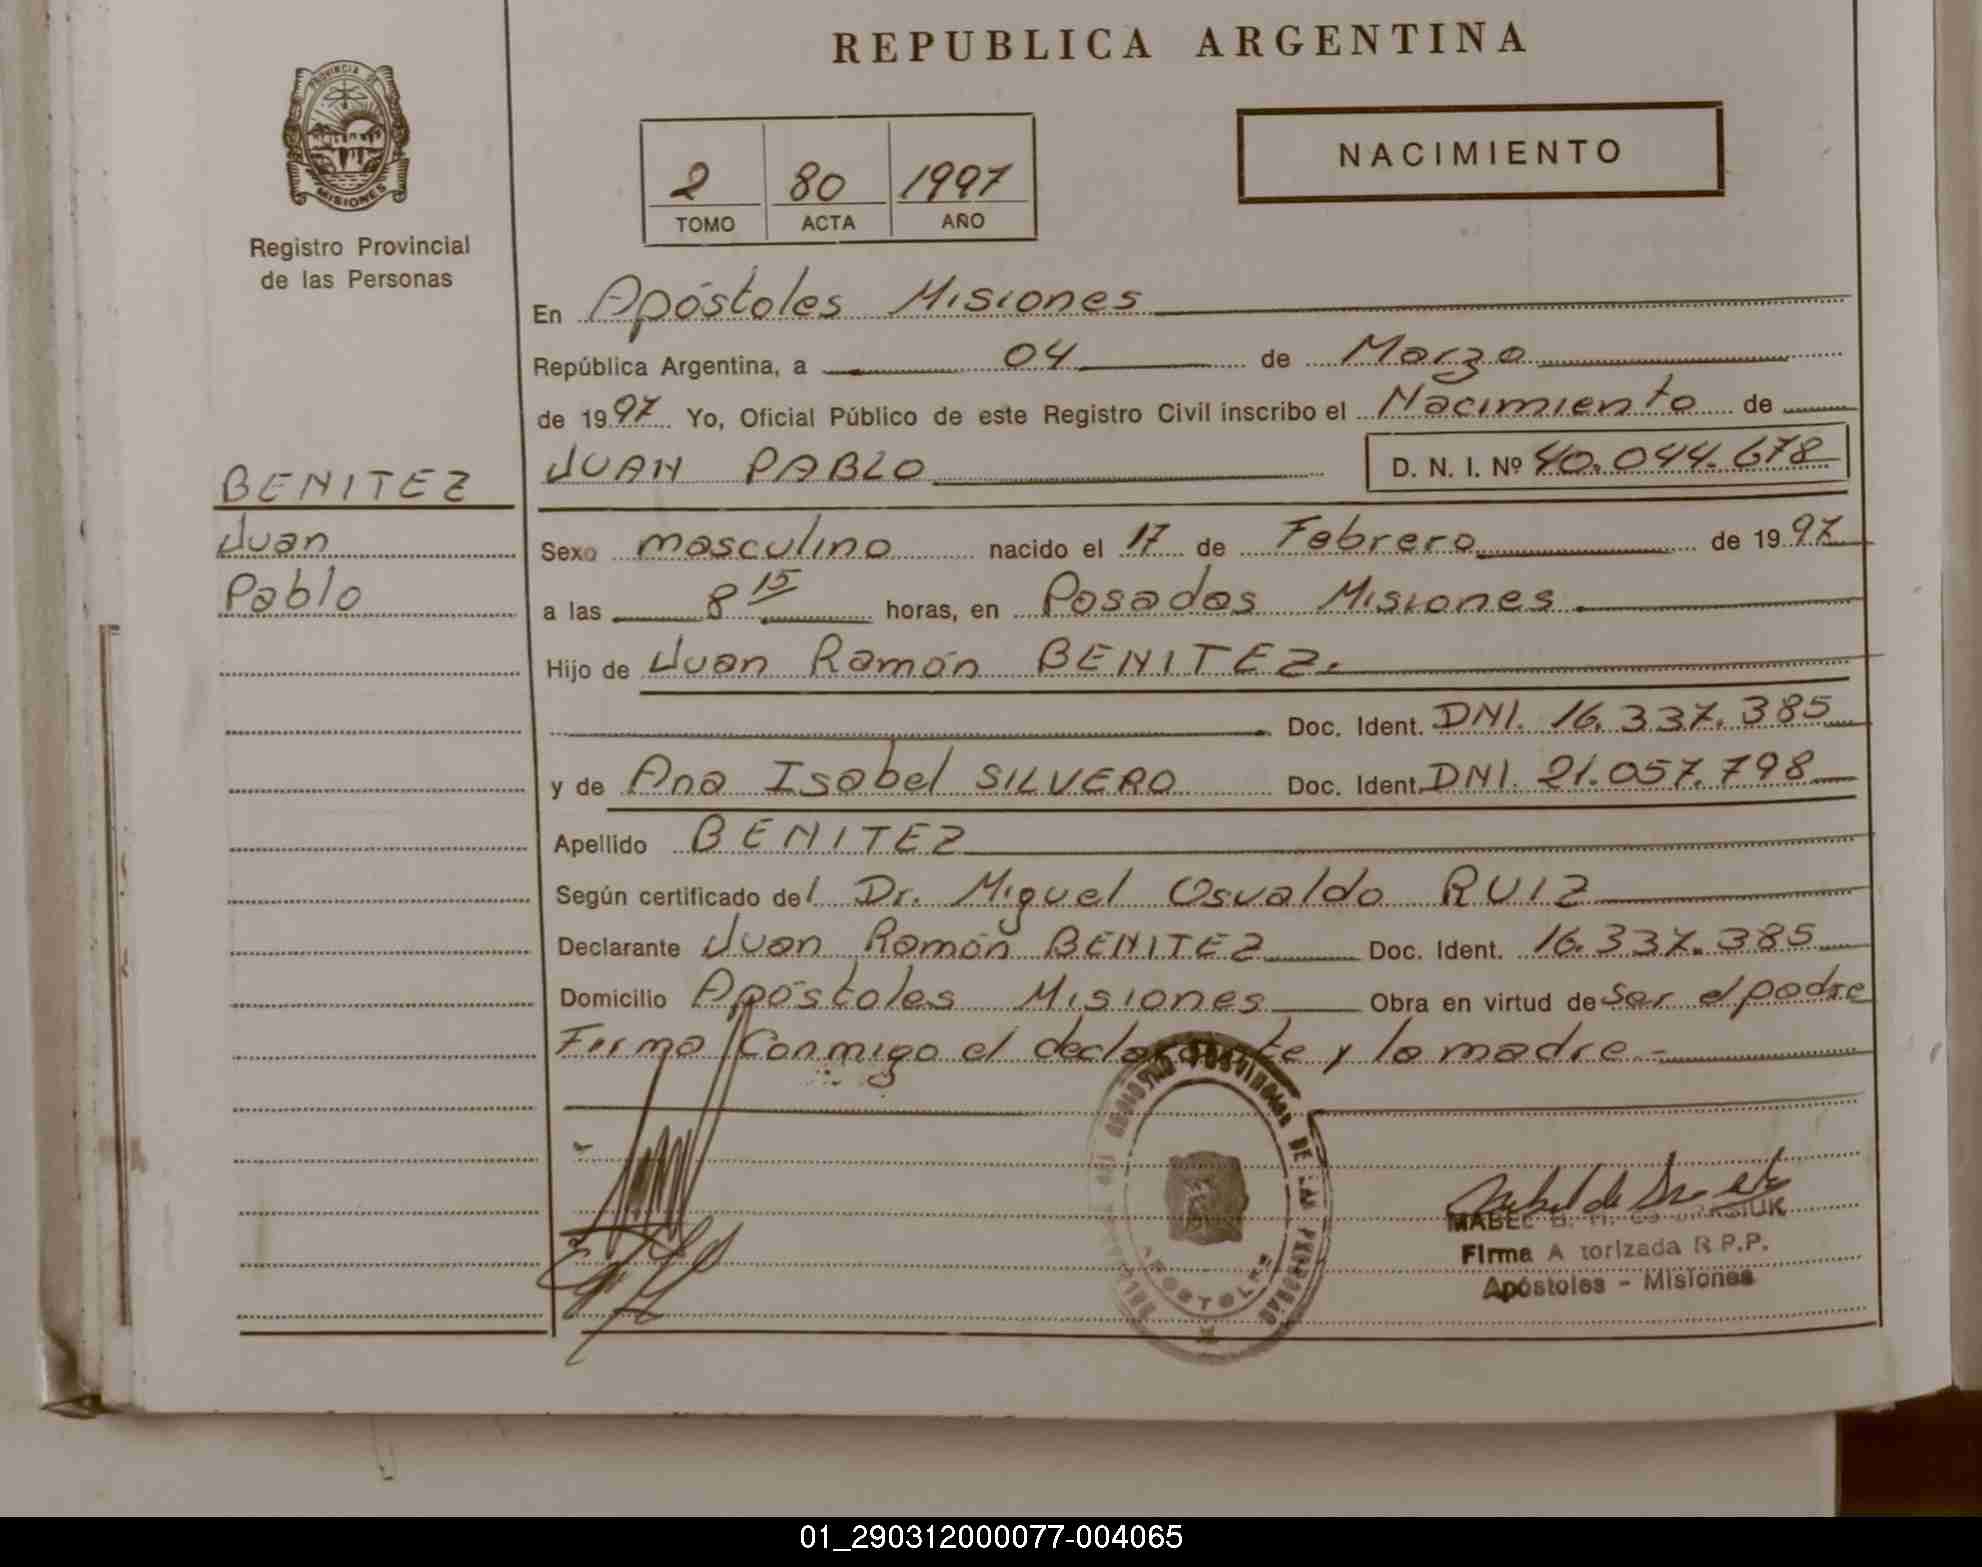 REPUBLICA ARGENTINA
PROVINCIA DE
MISIONES
Registro Provincial
de las Personas
2 80 1997
TOMO ACTA AÑO
NACIMIENTO
En Apóstoles Misiones
República Argentina, a 04 de Marzo
de 1997 Yo, Oficial Público de este Registro Civil inscribo el Nacimiento de
JUAN PABLO D. N. I. Nº 40.044.678
BENITEZ
Juan
Pablo
Sexo masculino nacido el 17 de Febrero de 1997
a las 8 15 horas, en Posadas Misiones
Hijo de Juan Ramón BENITEZ.
Doc. Ident. DNI. 16.337.385
y de Ana Isabel SILVERO Doc. Ident. DNI. 21.057.798
Apellido BENITEZ
Según certificado del Dr. Miguel Osvaldo RUIZ
Declarante Juan Ramón BENITEZ Doc. Ident. 16.337.385
Domicilio Apóstoles Misiones Obra en virtud de ser el padre
Firma Conmigo el declarante y la madre.-
REGISTRO PROVINCIAL DE LAS PERSONAS
APOSTOLES
MABEL
Firma A torizada R.P.P.
Apóstoles - Misiones
01_290312000077-004065